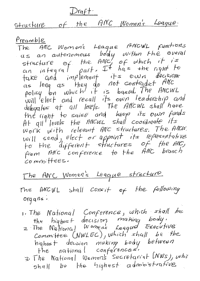 Draft
Structure of the ANC Women's League
Preamble
The ANC Women's League ANCWL functions
as an autonomous body within the overall
structure of the ANC, of which it is
an integral part. It has the right to
take and implement its own decisions
as long as they do not contradict ANC
policy on which it is based. The ANCWL
will elect and recall its own leadership and
delegates at all levels. The ANCWL shall have
the right to raise and keep its own funds
At all levels the ANCWL shall coordinate its
work with relevant ANC structures. The ANCWL
will send, elect or appoint its representatives
to the different structures of the ANC,
from ANC conference to the ANC branch
committees.
The ANC Women's League structure
The ANCWL shall consist of the following
organs:
1. The National Conference, which shall be
the highest decision making body.
2. The National Women's League Executive
Committee (NWLEC), which shall be the
highest decision making body between
the national conferences.
3. The National Women's Secretariat (NWS), who
shall be the highest administrative